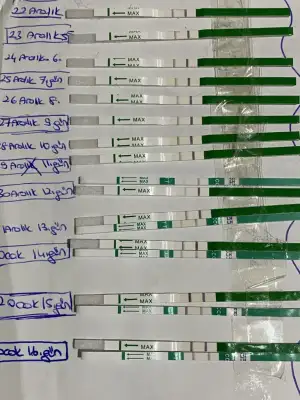 22 Aralık
MAX
23 Aralık 5
MAX
24 Aralık 6.
MAX
25 Aralık 7.gün
MAX
26 Aralık 8.
MAX
27 Aralık 9.gün
MAX
28 Aralık 10.gün
MAX
9 Aralık 11.gün
MAX
30 Aralık 12.gün
MAX
MAX
Aralık 13.gün
MAX
MAX
LH
ocak 14.gün
MAX
MAX
LH
2 Ocak 15.gün
MAX
MAX
LH
ocak 16.gün
MAX